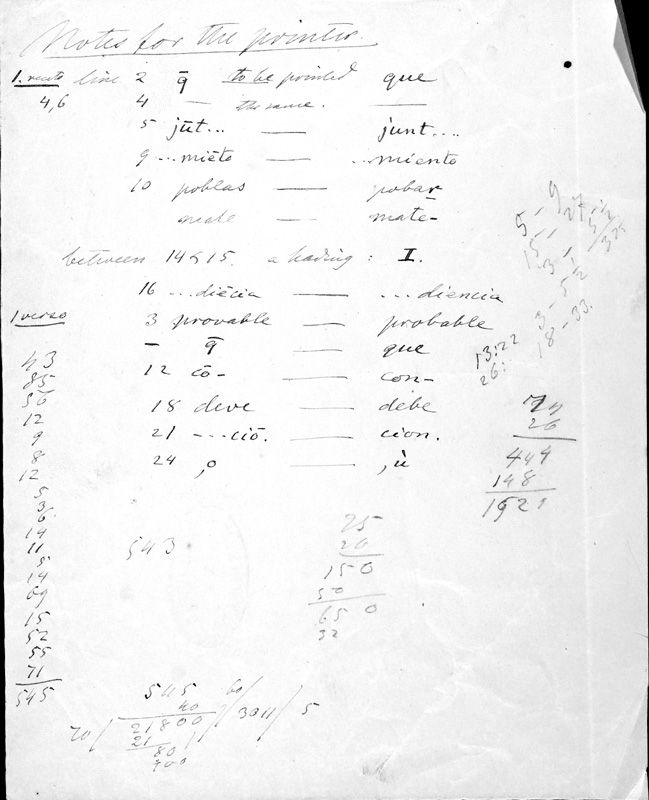 Notes for the printer.
1. recto line 2 q̄ to be printed que
4,6 4 — the same. —
5 jūt... — junt....
9 ...miēto — ...miento
10 poblas — pobar
mate — matē-
between 14 & 15. a heading: I.
16 ...diēcia — ...diencia
1 verso
3 provable — probable
- q̄ — que
12 cō- — con-
18 deve — debe
21 ...ciō. — cion.
24 ,o — ,ù
43
85
56
12
9
8
12
5
36
14
11
5
24
69
15
52
55
71
545
543
25
26
150
50
650
32
74
26
444
148
1924
13:22
26:
3 - 5
18 - 33.
545
40
21800
70
21
80
700
60
5